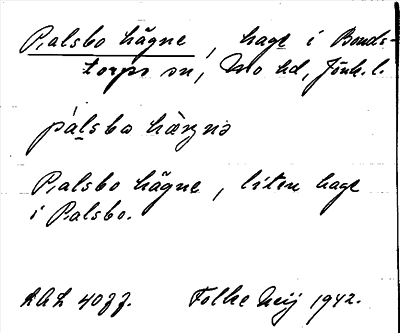 Palsbo hägne, hage i Bonds-
torps sn, Mo hd, Jönk. l.
pálsbo hägnə
Palsbo hägne, liten hage
i Palsbo.
Folke Meij 1942.